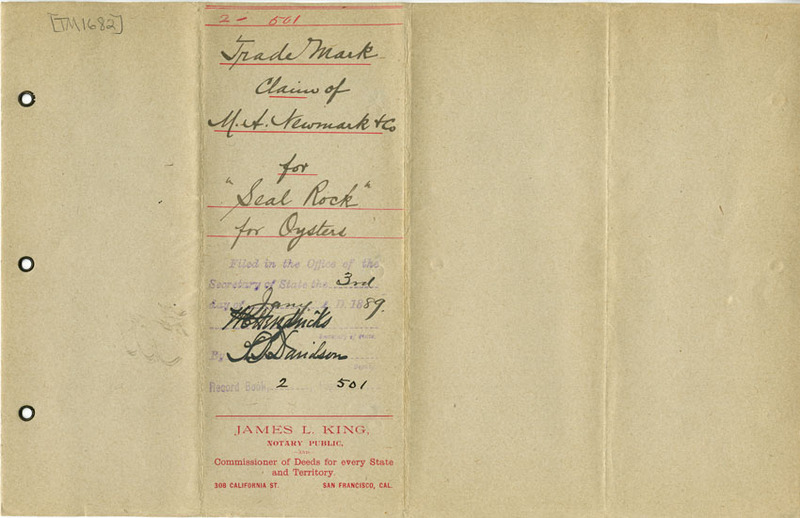 [TM1682]
2 - 501
Trade Mark
Claim of
M. A. Newmark & Co
for
"Seal Rock"
for Oysters
Filed in the Office of the
Secretary of State the 3rd
day of Jany A. D. 1889.
W C Hendricks
Secretary of State.
By Davidson
Deputy
Record Book 2 501
JAMES L. KING,
NOTARY PUBLIC,
-AND-
Commissioner of Deeds for every State
and Territory.
308 CALIFORNIA ST. SAN FRANCISCO, CAL.